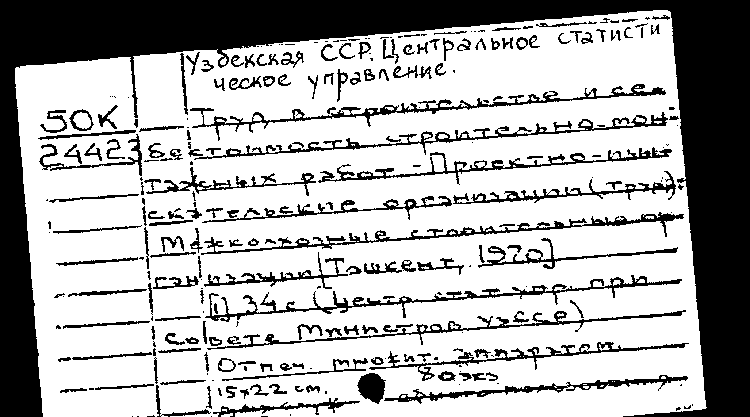 Узбекская ССР. Центральное статисти
ческое управление.
50К
24423
Труд в строительстве и се-
бестоимость строительно-мон-
тажных работ - Проектно-изы-
скательские организации (труд).
Межколхозные строительные ор-
ганизации [Ташкент, 1970]
[1], 34 с (Центр стат упр. при
Совете Министров УзССР)
Отпеч. множит. аппаратом.
15×22 см. 80 экз
пользования.